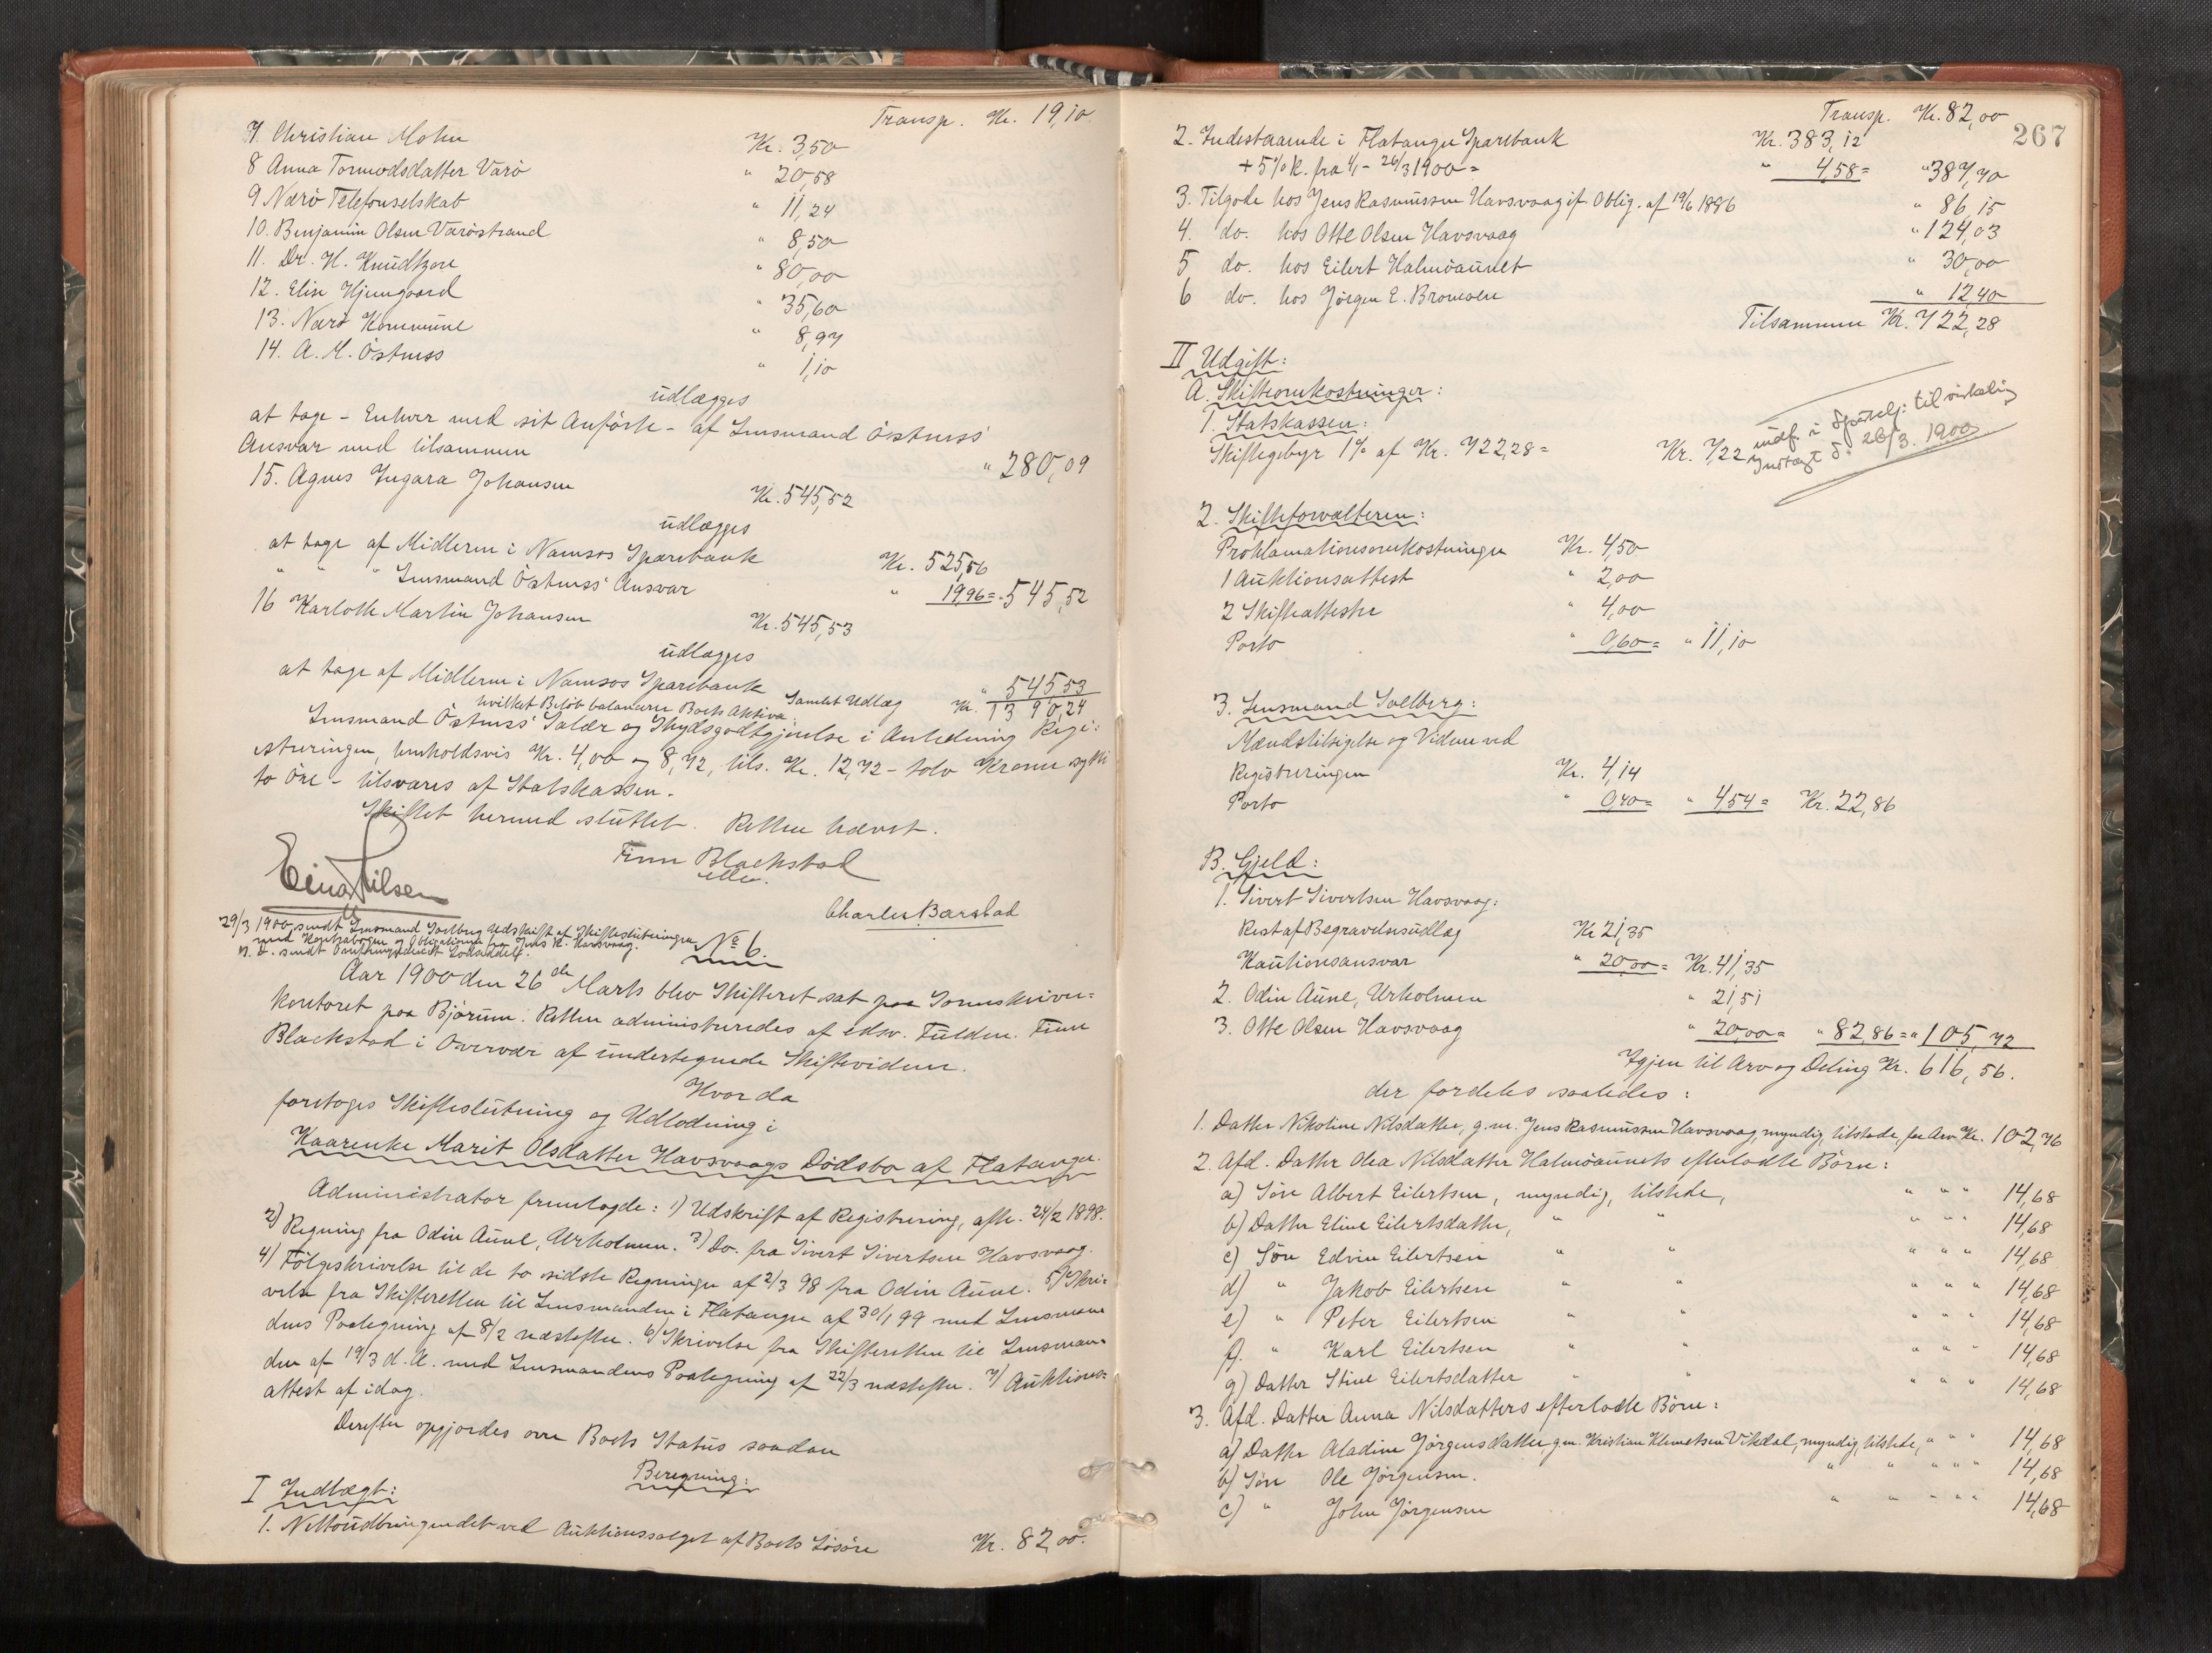 Transp. Kr. 19,10
7. Christian Mohn Kr. 3,50
8 Anna Tormodsdatter Varö " 20,58
9 Nærö Telefonselskab " 11,24
10. Benjamin Olsen Varöstrand " 8,50
11. Dr. H. Knudtzon " 80,00
12. Elise Hjemgaard " 35,60
13. Nærö Kommune " 8,97
14. A. M. Östness " 1,10
udlægges
at tage - Enhver med sit Anförte - af Lensmand Östness'
Ansvar med tilsammen " 280,09
15. Agnes Ingara Johansen Kr. 545,52
udlægges
at tage af Midlerne i Namsos Sparebank Kr. 525,56
" " " Lensmand Östness' Ansvar " 19,96 = " 545,52
16 Karloth Martin Johansen Kr. 545,53
udlægges
at tage af Midlerne i Namsos Sparebank " 545,53
Samlet Udlæg Kr. 1390,24
hvilket Belöb balancerer Boets Aktiva.
Lensmand Östness' Salær og Skydsgodtgjørelse i Anledning Regi-
streringen, henholdsvis Kr. 4,00 og 8,72, tils. Kr. 12,72 - tolv Kroner sytti
to Öre - tilsvares af Statskassen.
Skiftet hermed sluttet. Retten hævet.
Finn Blackstad
edsv.
Einar Nilsen
Charles Barstad
29/3 1900 sendt Lensmand Solberg Udskrift af Skifteslutningen
med Kontrabogen og Obligationen fra Jens R. Havsvaag.
N. B. sendt Lodseddel.
No 6.
Aar 1900 den 26de Marts blev Skifteret sat paa Sorenskriver-
kontoret paa Bjørum. Retten administreredes af edsv. Fuldm. Finn
Blackstad i Overvær af undertegnede Skiftevidner.
Hvor da
foretoges Skifteslutning og Udlodning i
Kaarenke Marit Olsdatter Havsvaags Dödsbo af Flatanger.
Administrator fremlagde: 1) Udskrift af Registrering, afh. 24/2 1898.
2) Regning fra Odin Aune, Urholmen. 3) Do. fra Sivert Sivertsen Havsvaag.
4) Fölgeskrivelse til de to sidste Regninger af 2/3 98 fra Odin Aune. 5) Skri-
velse fra Skifteretten til Lensmanden i Flatanger af 30/1 99 med Lensman-
dens Paategning af 8/2 næstefter. 6) Skrivelse fra Skifteretten til Lensman-
den af 19/3 d. A. med Lensmandens Paategning af 22/3 næstefter. 7) Auktions-
attest af idag.
Derefter opgjordes over Boets Status saadan
Beregning:
I Indtægt:
1. Nettoudbringendet ved Auktionssalget af Boets Lösöre Kr. 82,00.
267
Transp. Kr. 82,00
2. Indestaaende i Flatanger Sparebank Kr. 383,12
+ 5% R. fra 1/1 - 26/3 1900 = " 4,58 = " 387,70
3. Tilgode hos Jens Rasmussen Havsvaag if. Oblig. af 19/6 1896 " 86,15
4. do. hos Otte Olsen Havsvaag " 124,03
5 do. hos Eilert Halmöaunet " 30,00
6 do. hos Jörgen E. Bromoen " 12,40
Tilsammen Kr. 722,28
II Udgift:
A. Skifteomkostninger:
1. Statskassen:
Skiftegebyr 1% af Kr. 722,28 = Kr. 7,22
indf. i Sportelj: til virkelig
Indtægt d. 26/3. 1900
2. Skifteforvalteren:
Proklamationsomkostninger Kr. 4,50
1 Auktionsattest " 2,00
2 Skifteattester " 4,00
Porto " 0,60 = " 11,10
3. Lensmand Solberg:
Mændstilsigelse og Vidner ved
Registreringen Kr. 4,14
Porto " 0,40 = " 4,54 = Kr. 22,86
B. Gjeld:
1. Sivert Sivertsen Havsvaag:
Rest af Begravelsesudlæg Kr 21,35
Kautionsansvar " 20,00 = Kr. 41,35
2. Odin Aune, Urholmen " 21,51
3. Otte Olsen Havsvaag " 20,00 = " 82,86 = " 105,72
Igjen til Arv og Deling Kr. 616,56.
der fordeles saaledes:
1. Datter Nikoline Nilsdatter, g. m. Jens Rasmussen Havsvaag, myndig, tilstede, faar Arv Kr. 102,76
2. Afd. Datter Olea Nilsdatter Halmöaunets efterladte Börn:
a) Sön Albert Eilertsen, myndig, tilstede, " " " 14,68
b) Datter Eline Eilertsdatter, " " " " " 14,68
c) Sön Edvin Eilertsen " " " " " 14,68
d) " Jakob Eilertsen " " " " " 14,68
e) " Peter Eilertsen " " " " " 14,68
f). " Karl Eilertsen " " " " " 14,68
g) Datter Stine Eilertsdatter " " " " " 14,68
3. Afd. Datter Anna Nilsdatters efterladte Börn:
a) Datter Aladine Jörgensdatter, g. m. Kristian Klemetsen Vikdal, myndig, tilstede, " " " 14,68
b) Sön Ole Jörgensen. " " " " " 14,68
c) " John Jörgensen " " " " " 14,68